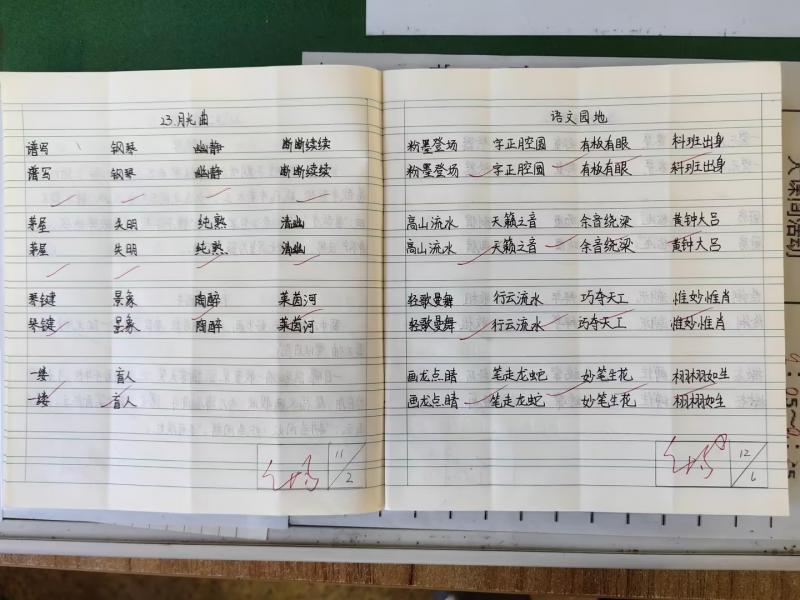 23.月光曲
谱写 钢琴 幽静 断断续续
谱写 钢琴 幽静 断断续续
茅屋 失明 纯熟 清幽
茅屋 失明 纯熟 清幽
琴键 景象 陶醉 莱茵河
琴键 景象 陶醉 莱茵河
一缕 盲人
一缕 盲人
11/2
语文园地
粉墨登场 字正腔圆 有板有眼 科班出身
粉墨登场 字正腔圆 有板有眼 科班出身
高山流水 天籁之音 余音绕梁 黄钟大吕
高山流水 天籁之音 余音绕梁 黄钟大吕
轻歌曼舞 行云流水 巧夺天工 惟妙惟肖
轻歌曼舞 行云流水 巧夺天工 惟妙惟肖
画龙点睛 笔走龙蛇 妙笔生花 栩栩如生
画龙点睛 笔走龙蛇 妙笔生花 栩栩如生
12/6
大课间活动